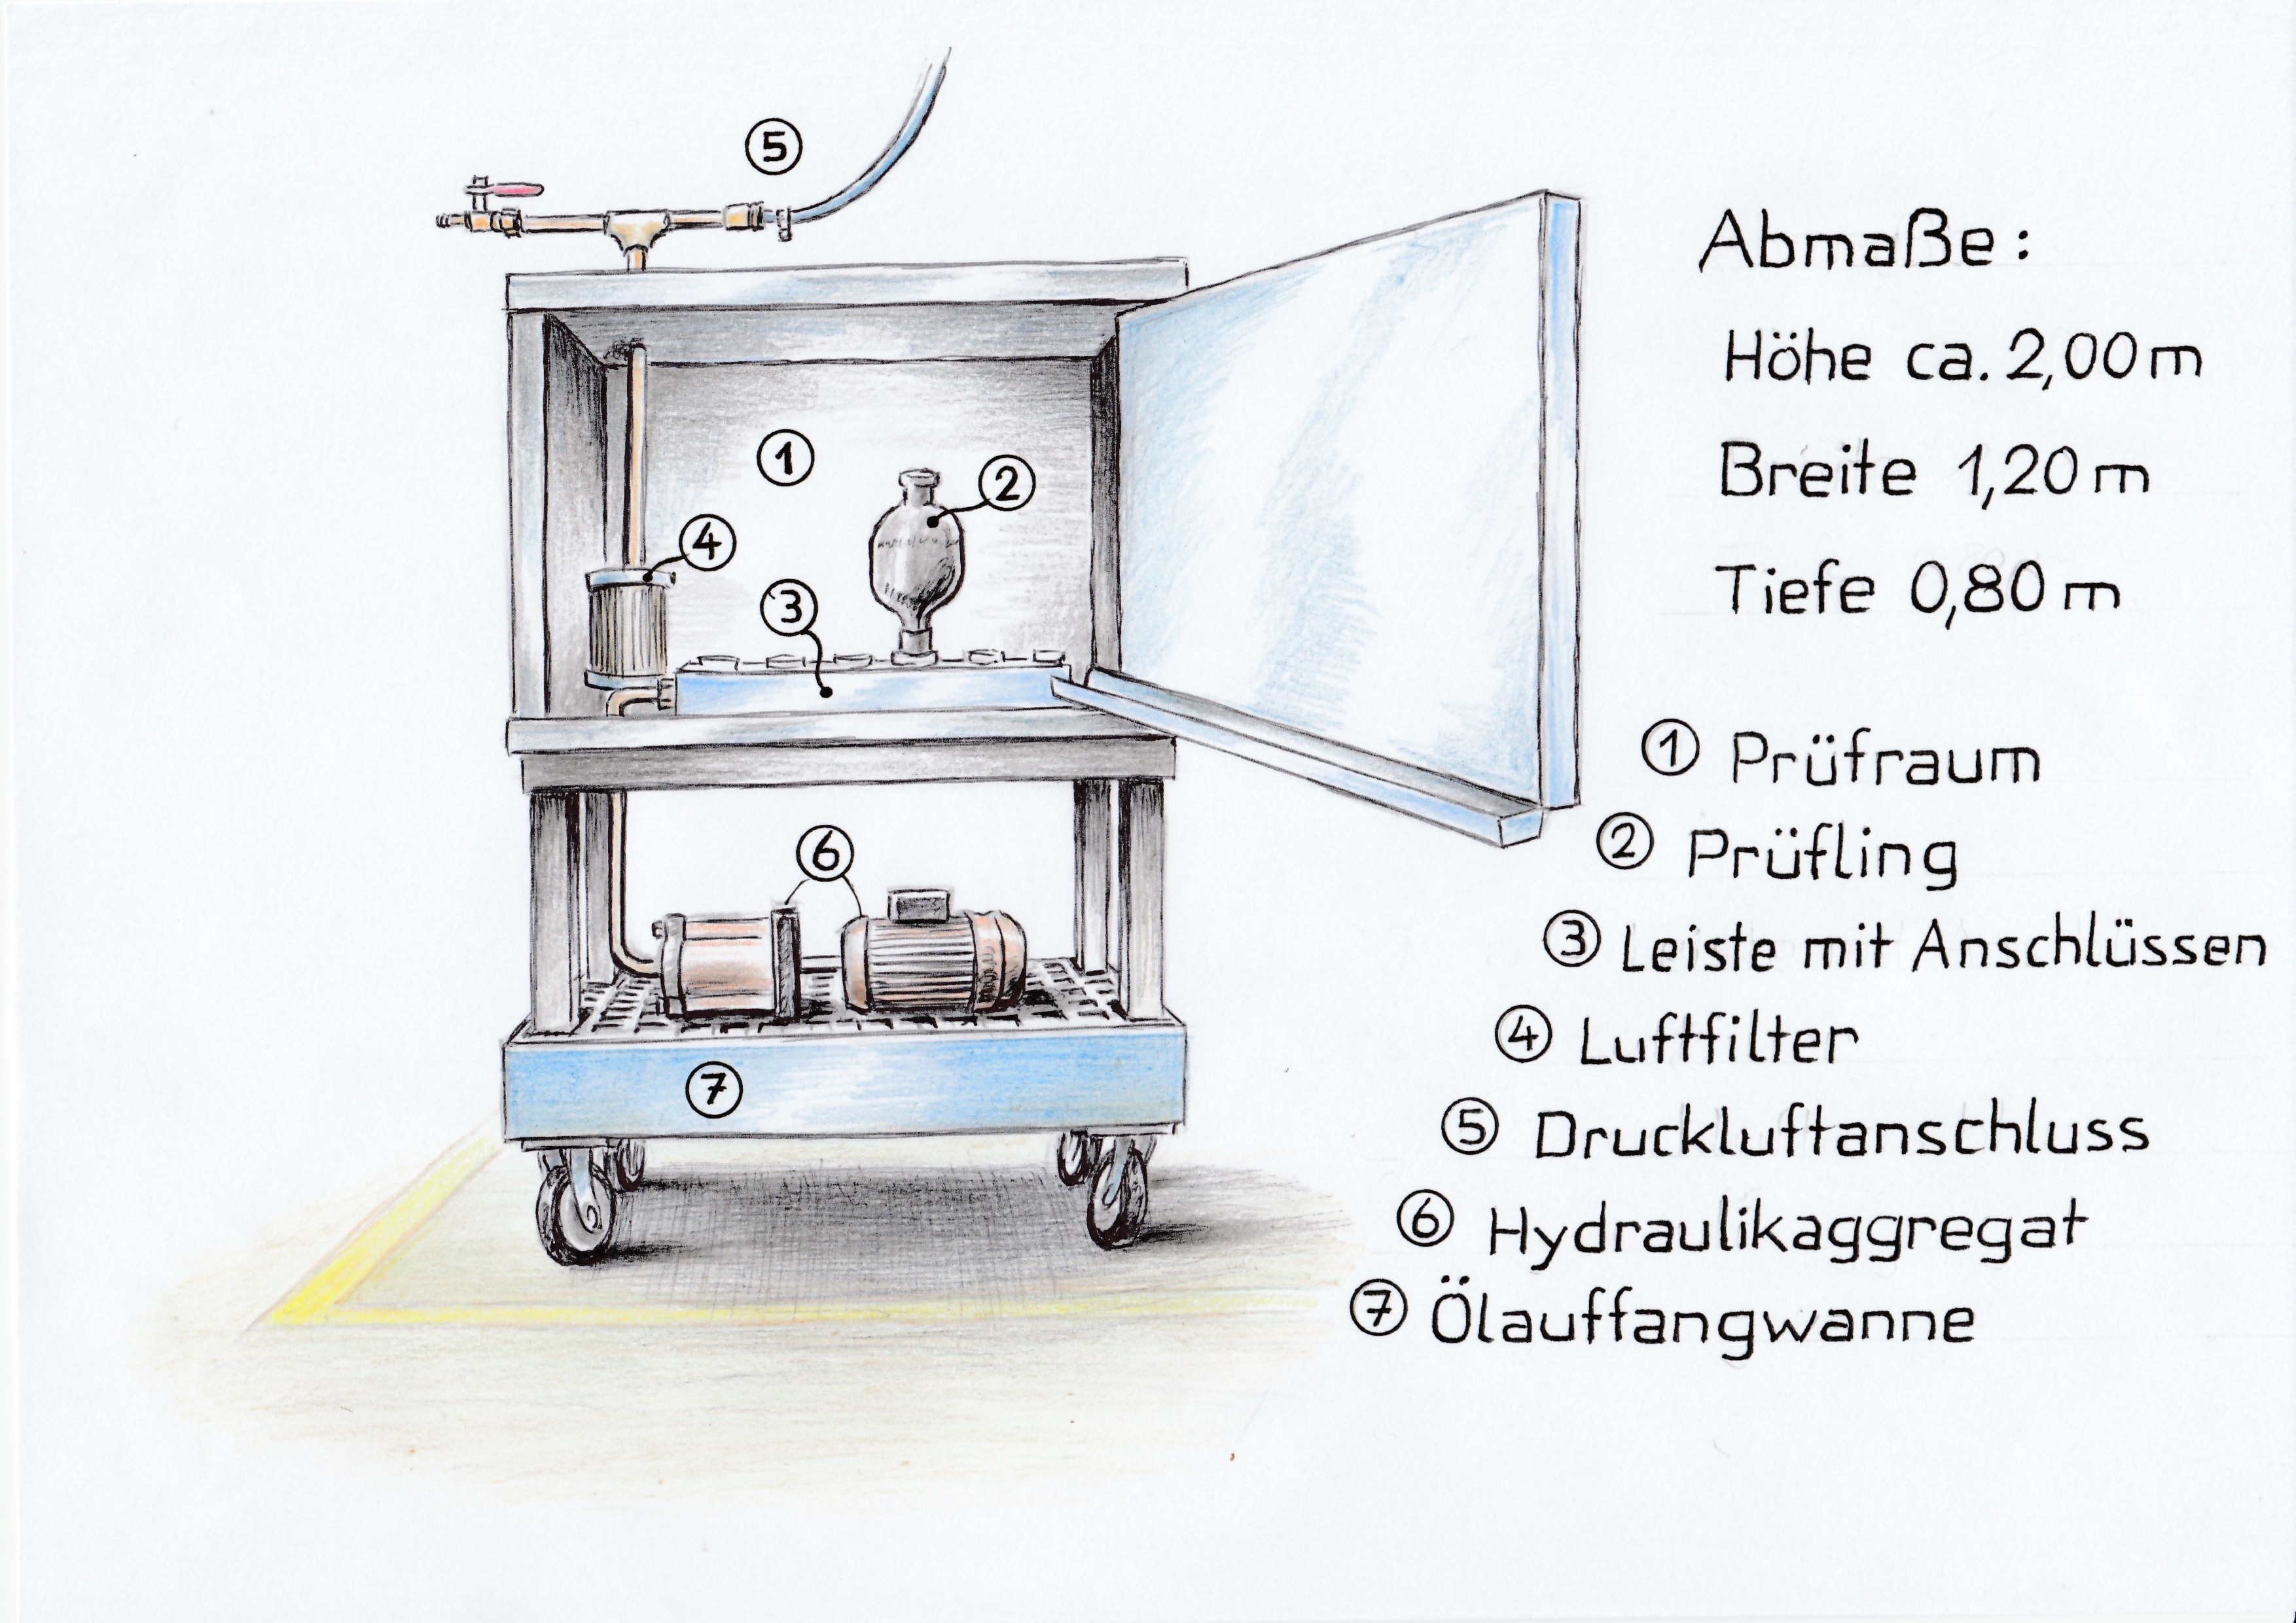 5
1
2
4
3
6
7
Abmaße:
Höhe ca. 2,00 m
Breite 1,20 m
Tiefe 0,80 m
1 Prüfraum
2 Prüfling
3 Leiste mit Anschlüssen
4 Luftfilter
5 Druckluftanschluss
6 Hydraulikaggregat
7 Ölauffangwanne